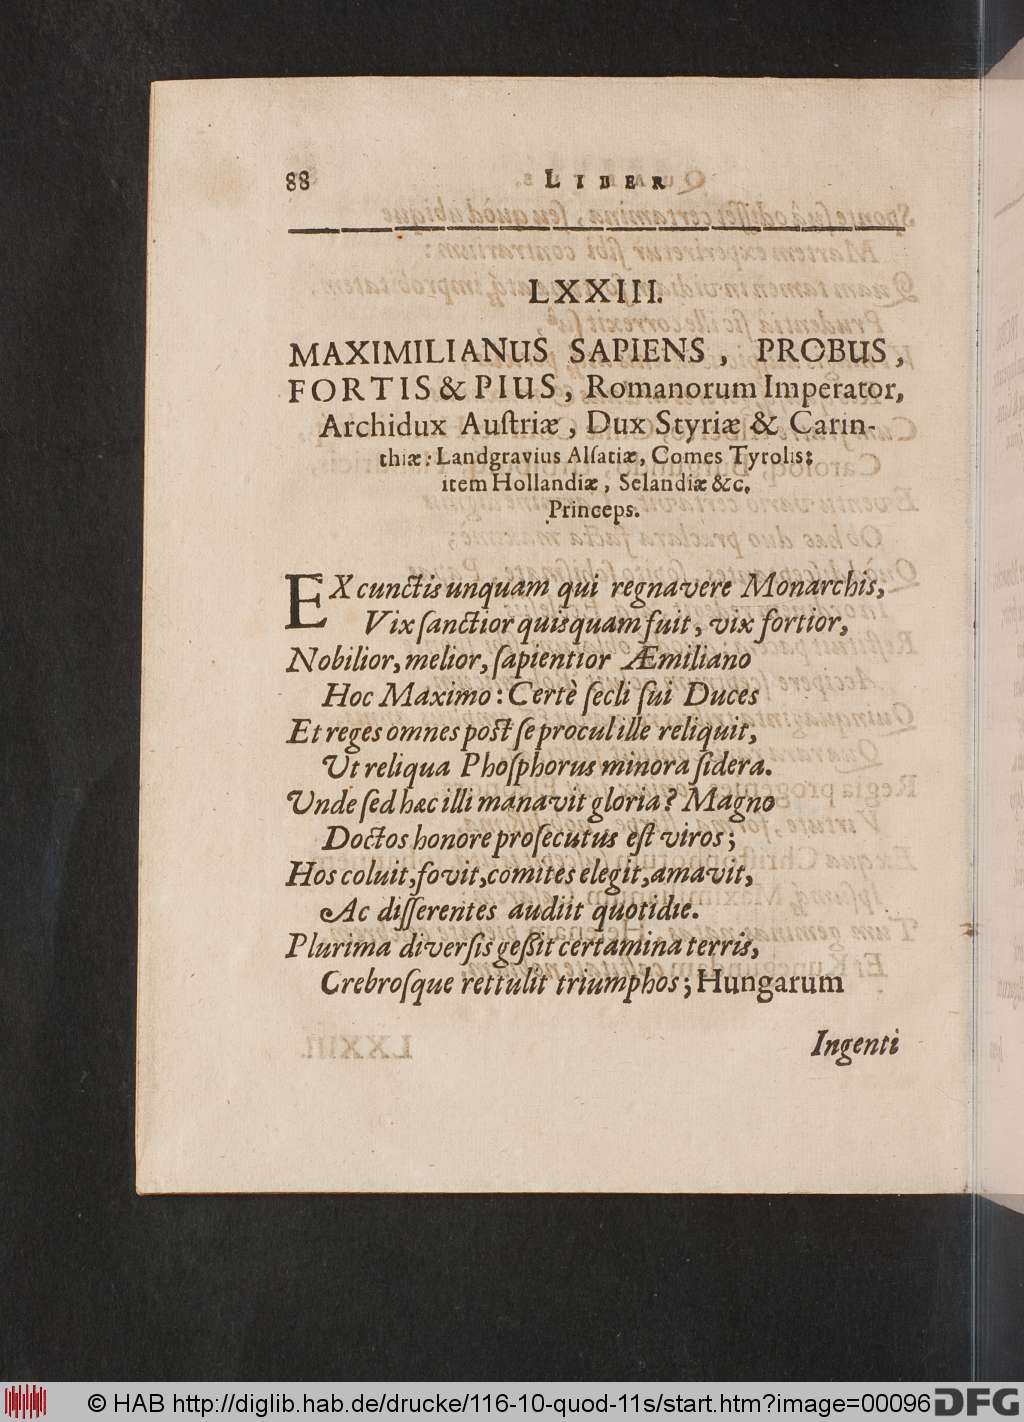 88 LIBER
LXXIII.
MAXIMILIANUS SAPIENS, PROBUS,
FORTIS & PIUS, Romanorum Imperator,
Archidux Auſtriæ, Dux Styriæ & Carin-
thiæ: Landgravius Alſatiæ, Comes Tyrolis:
item Hollandiæ, Selandiæ &c.
Princeps.
EX cunctis unquam qui regnavere Monarchis,
Vix ſanctior quisquam fuit, vix fortior,
Nobilior, melior, ſapientior Æmiliano
Hoc Maximo: Certè ſecli ſui Duces
Et reges omnes poſt ſe procul ille reliquit,
Ut reliqua Phoſphorus minora ſidera.
Unde ſed hæc illi manavit gloria? Magno
Doctos honore proſecutus eſt viros;
Hos coluit, fovit, comites elegit, amavit,
Ac diſſerentes audiit quotidie.
Plurima diverſis geſſit certamina terris,
Crebroſque rettulit triumphos; Hungarum
LXXIII. Ingenti
© HAB http://diglib.hab.de/drucke/116-10-quod-11s/start.htm?image=00096 DFG